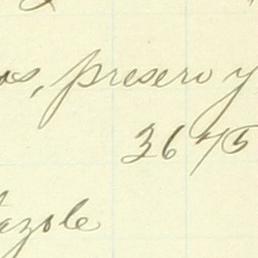 os, presero y
36 75
azole